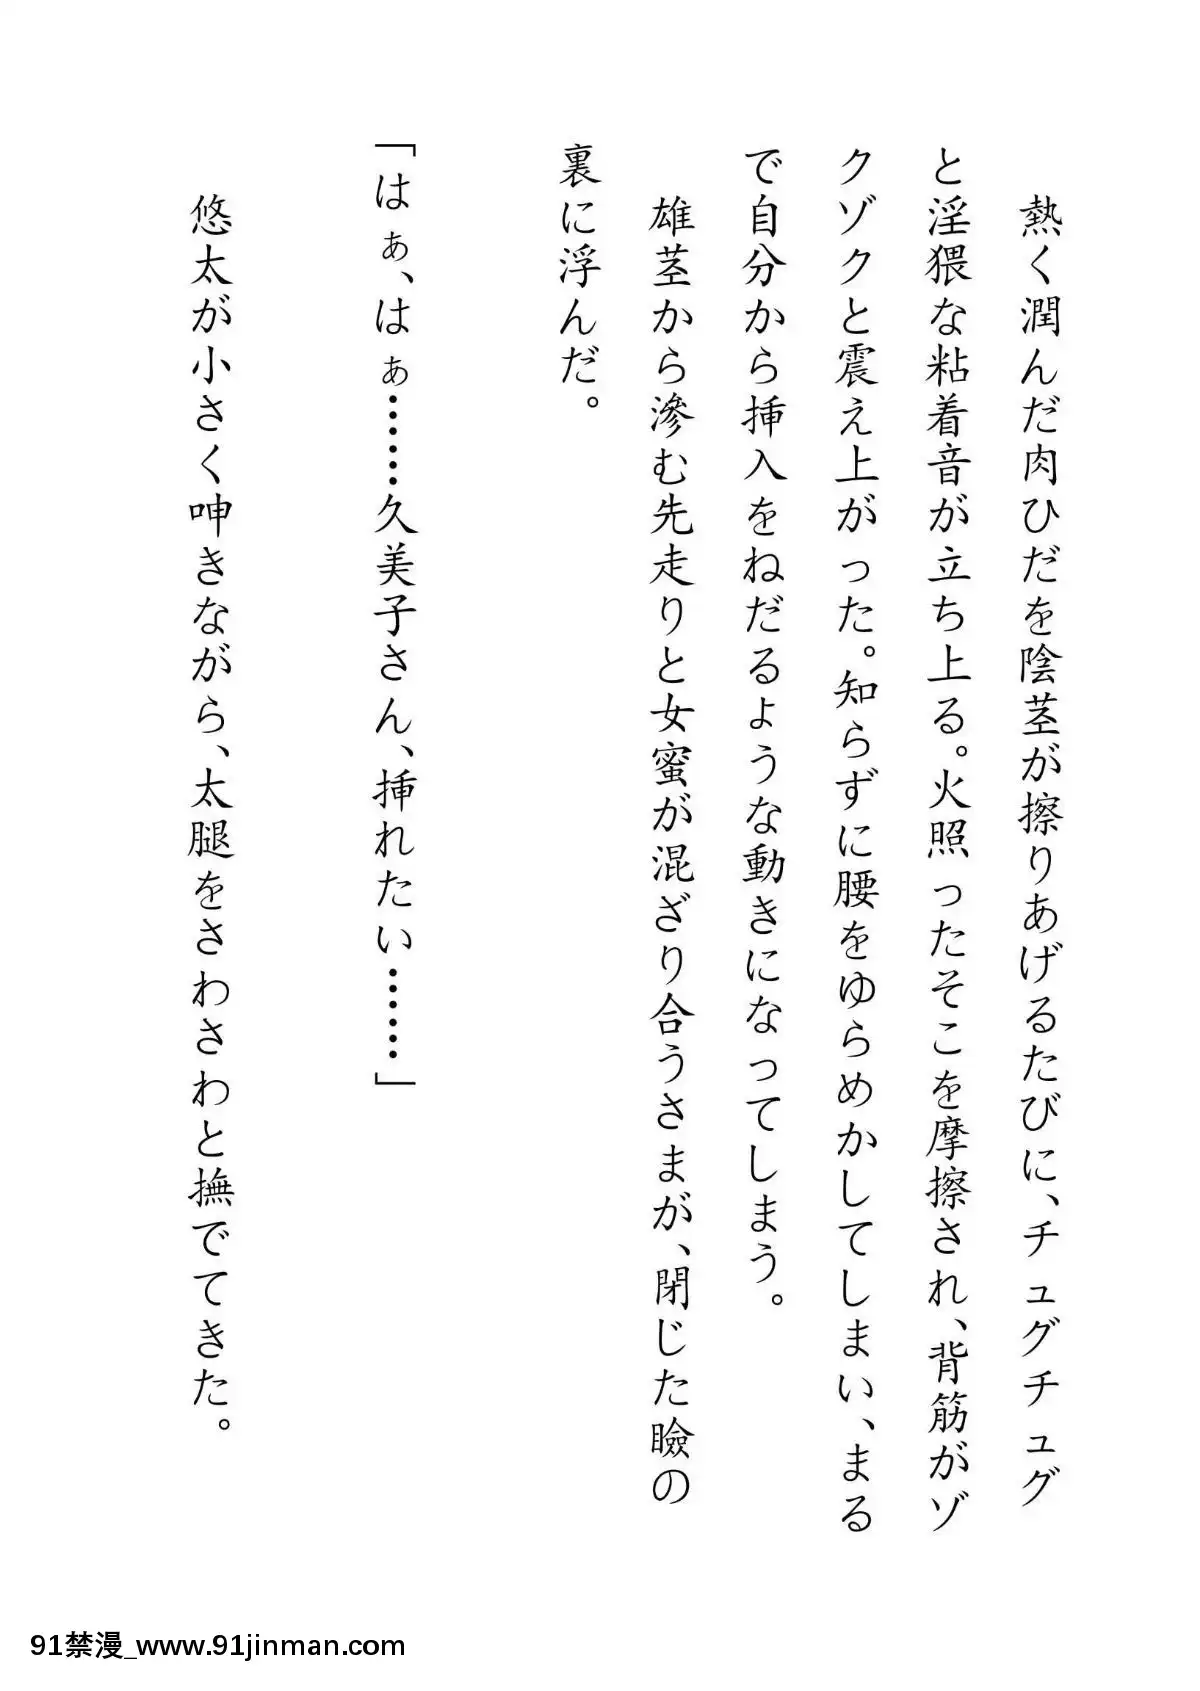 熱く潤んだ肉ひだを陰茎が擦りあげるたびに、チュグチュグ
と淫猥な粘着音が立ち上る。火照ったそこを摩擦され、背筋がゾ
クゾクと震え上がった。知らずに腰をゆらめかしてしまい、まる
で自分から挿入をねだるような動きになってしまう。
雄茎から滲む先走りと女蜜が混ざり合うさまが、閉じた瞼の
裏に浮んだ。
「はぁ、はぁ……久美子さん、挿れたい……」
悠太が小さく呻きながら、太腿をさわさわと撫でてきた。
91禁漫_www.91jinman.com